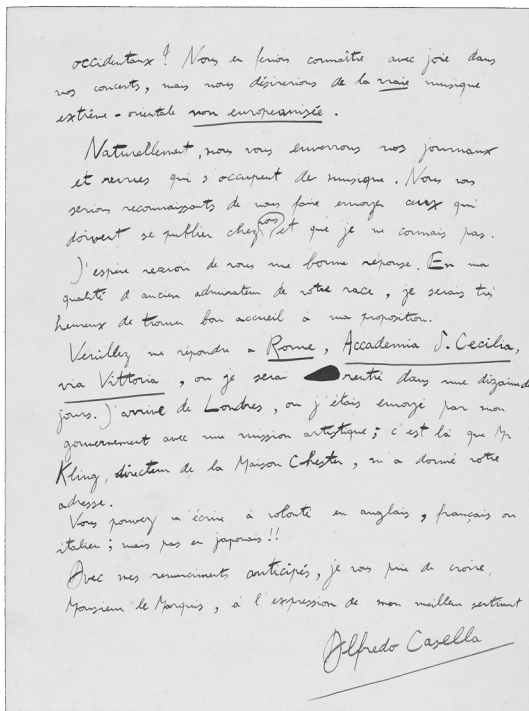 occidentaux ? Nous en ferions connaître avec joie dans
nos concerts, mais nous désirerions de la vraie musique
extrême-orientale non européanisée.
Naturellement, nous vous enverrons nos journaux
et revues qui s'occupent de musique. Nous vous
serions reconnaissants de nous faire envoyer ceux qui
doivent se publier chez vous et que je ne connais pas.
J'espère recevoir de vous une bonne réponse. En ma
qualité d'ancien admirateur de votre race, je serais très
heureux de trouver bon accueil à ma proposition.
Veuillez me répondre à Rome, Accademia S. Cecilia,
via Vittoria, où je serai rentré dans une dizaine de
jours. J'arrive de Londres, où j'étais envoyé par mon
gouvernement avec une mission artistique ; c'est là que Mr
Kling, directeur de la Maison Chester, m'a donné votre
adresse.
Vous pouvez m'écrire à volonté en anglais, français ou
italien ; mais pas en japonais !!
Avec mes remerciments anticipés, je vous prie de croire,
Monsieur le Marquis, à l'expression de mon meilleur sentiment
Alfredo Casella